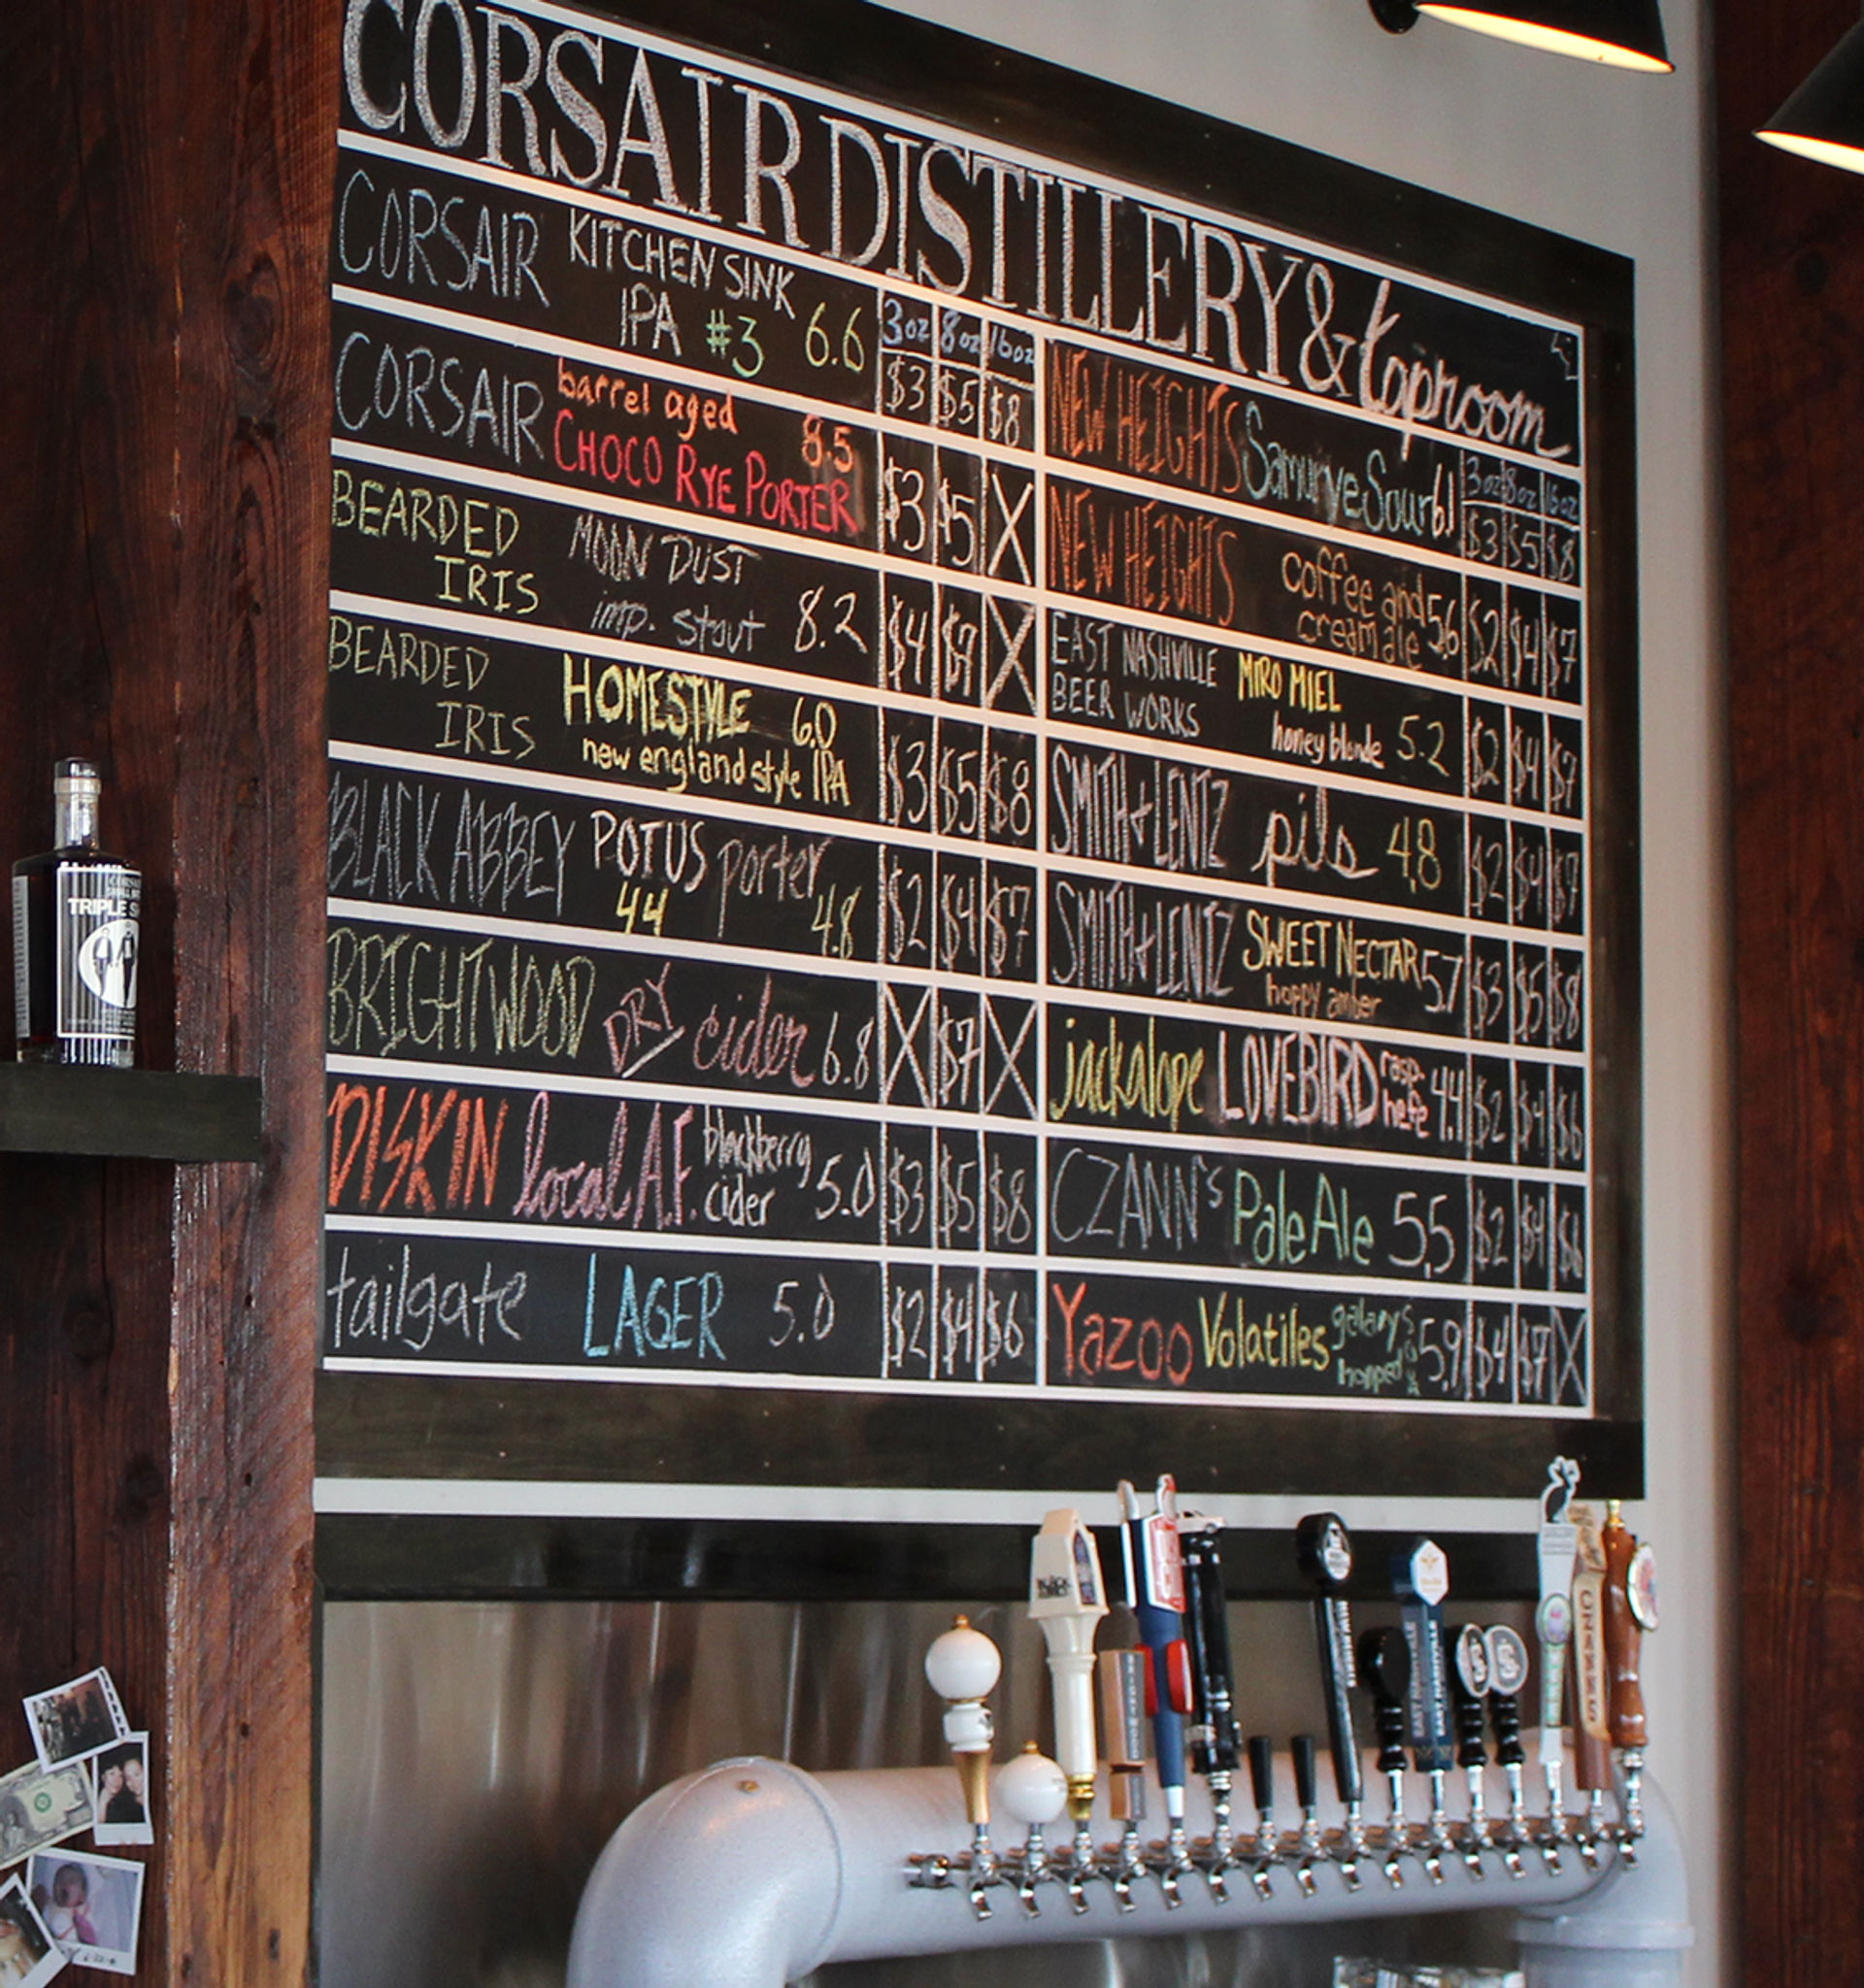 CORSAIR DISTILLERY & taproom
CORSAIR KITCHEN SINK
IPA #3 6.6
3oz 8oz 16oz
$3 $5 $8
CORSAIR barrel aged 8.5
CHOCO RYE PORTER
$3 $5 X
BEARDED IRIS MOON DUST
imp. stout 8.2
$4 $7 X
BEARDED IRIS HOMESTYLE 6.0
new england style IPA
$3 $5 $8
BLACK ABBEY POTUS porter
44 4.8
$2 $4 $7
BRIGHTWOOD DRY cider 6.8
X $7 X
DISKIN local A.F. blackberry
cider 5.0
$3 $5 $8
tailgate LAGER 5.0
$2 $4 $6
NEW HEIGHTS Samurye Sour 6.1
3oz 8oz 16oz
$3 $5 $8
NEW HEIGHTS coffee and
cream ale 5.6
$2 $4 $7
EAST NASHVILLE
BEER WORKS
MIRO MIEL
honey blonde 5.2
$2 $4 $7
SMITH & LENTZ pils 4.8
$2 $4 $7
SMITH & LENTZ SWEET NECTAR 5.7
hoppy amber
$3 $5 $8
jackalope LOVEBIRD rasp.
hefe 4.4
$2 $4 $6
CZANN's Pale Ale 5.5
$2 $4 $6
Yazoo Volatiles galaxy
hopped 5.9
$4 $7 X
TRIPLE
EAST NASHVILLE